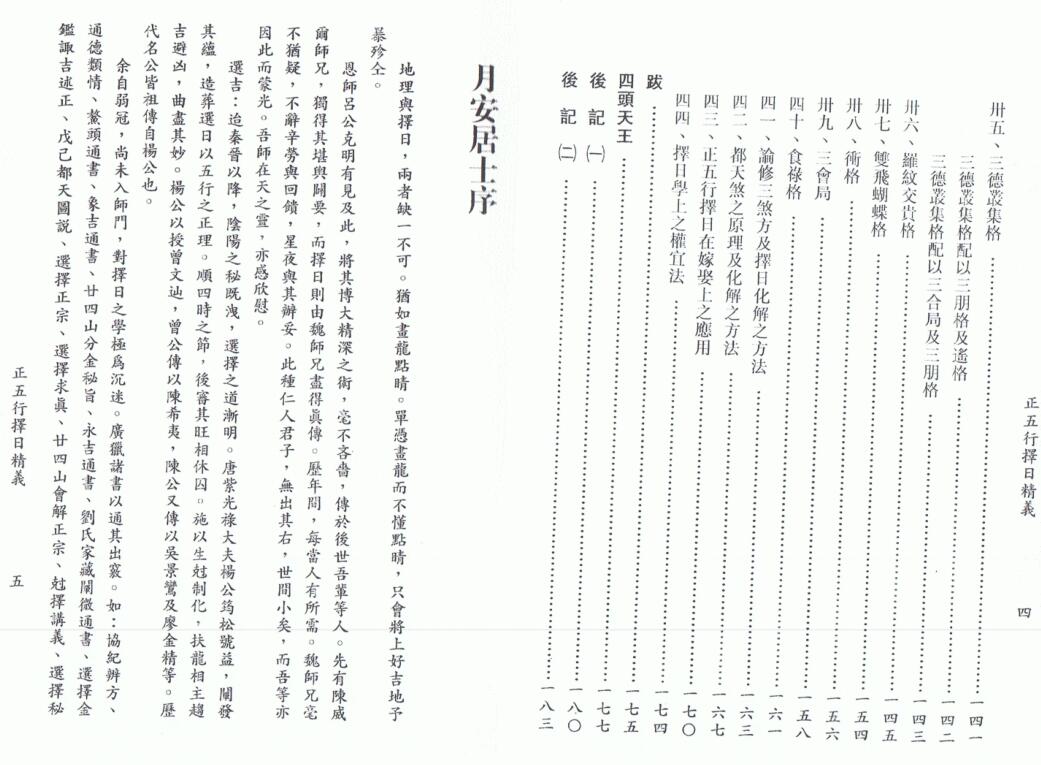 正五行擇日精義
四
卅五、三德叢集格……一四一
三德叢集格配以三朋格及遙格……一四二
三德叢集格配以三合局及三朋格……一四三
卅六、羅紋交貴格……一四五
卅七、雙飛蝴蝶格……一五四
卅八、衖格……一五六
卅九、三會局……一五八
四十、食祿格……一六一
四一、論修三煞方及擇日化解之方法……一六三
四二、都天煞之原理及化解之方法……一六七
四三、正五行擇日在嫁娶上之應用……一七〇
四四、擇日學上之權宜法……一七四
跋……一七五
四頭天王……一七七
後記㈠……一八〇
後記㈡……一八三
月安居士序
地理與擇日，兩者缺一不可。猶如畫龍點睛。單憑畫龍而不懂點睛，只會將上好吉地予
暴殄仝。
恩師呂公克明有見及此，將其博大精深之術，毫不吝嗇，傳於後世吾輩等人。先有陳威
爾師兄，獨得其堪輿關要，而擇日則由魏師兄盡得眞傳。歷年間，每當人有所需。魏師兄毫
不猶疑，不辭辛勞與回饋，星夜與其辦妥。此種仁人君子，無出其右，世間小矣，而吾等亦
因此而蒙光。吾師在天之靈，亦感欣慰。
選吉：迨秦晉以降，陰陽之秘既洩，選擇之道漸明。唐紫光祿大夫楊公筠松號益，闡發
其蘊，造葬選日以五行之正理。順四時之節，後審其旺相休囚。施以生尅制化，扶龍相主趨
吉避凶，曲盡其妙。楊公以授曾文辿，曾公傳以陳希夷，陳公又傳以吳景鸞及廖金精等。歷
代名公皆祖傳自楊公也。
余自弱冠，尚未入師門，對擇日之學極爲沉迷。廣獵諸書以通其出竅。如：協紀辨方、
通德類情、鰲頭通書、象吉通書、廿四山分金秘旨、永吉通書、劉氏家藏闡微通書、選擇金
鑑諏吉述正、戊己都天圖説、選擇正宗、選擇求眞、廿四山會解正宗、尅擇講義、選擇秘
正五行擇日精義
五